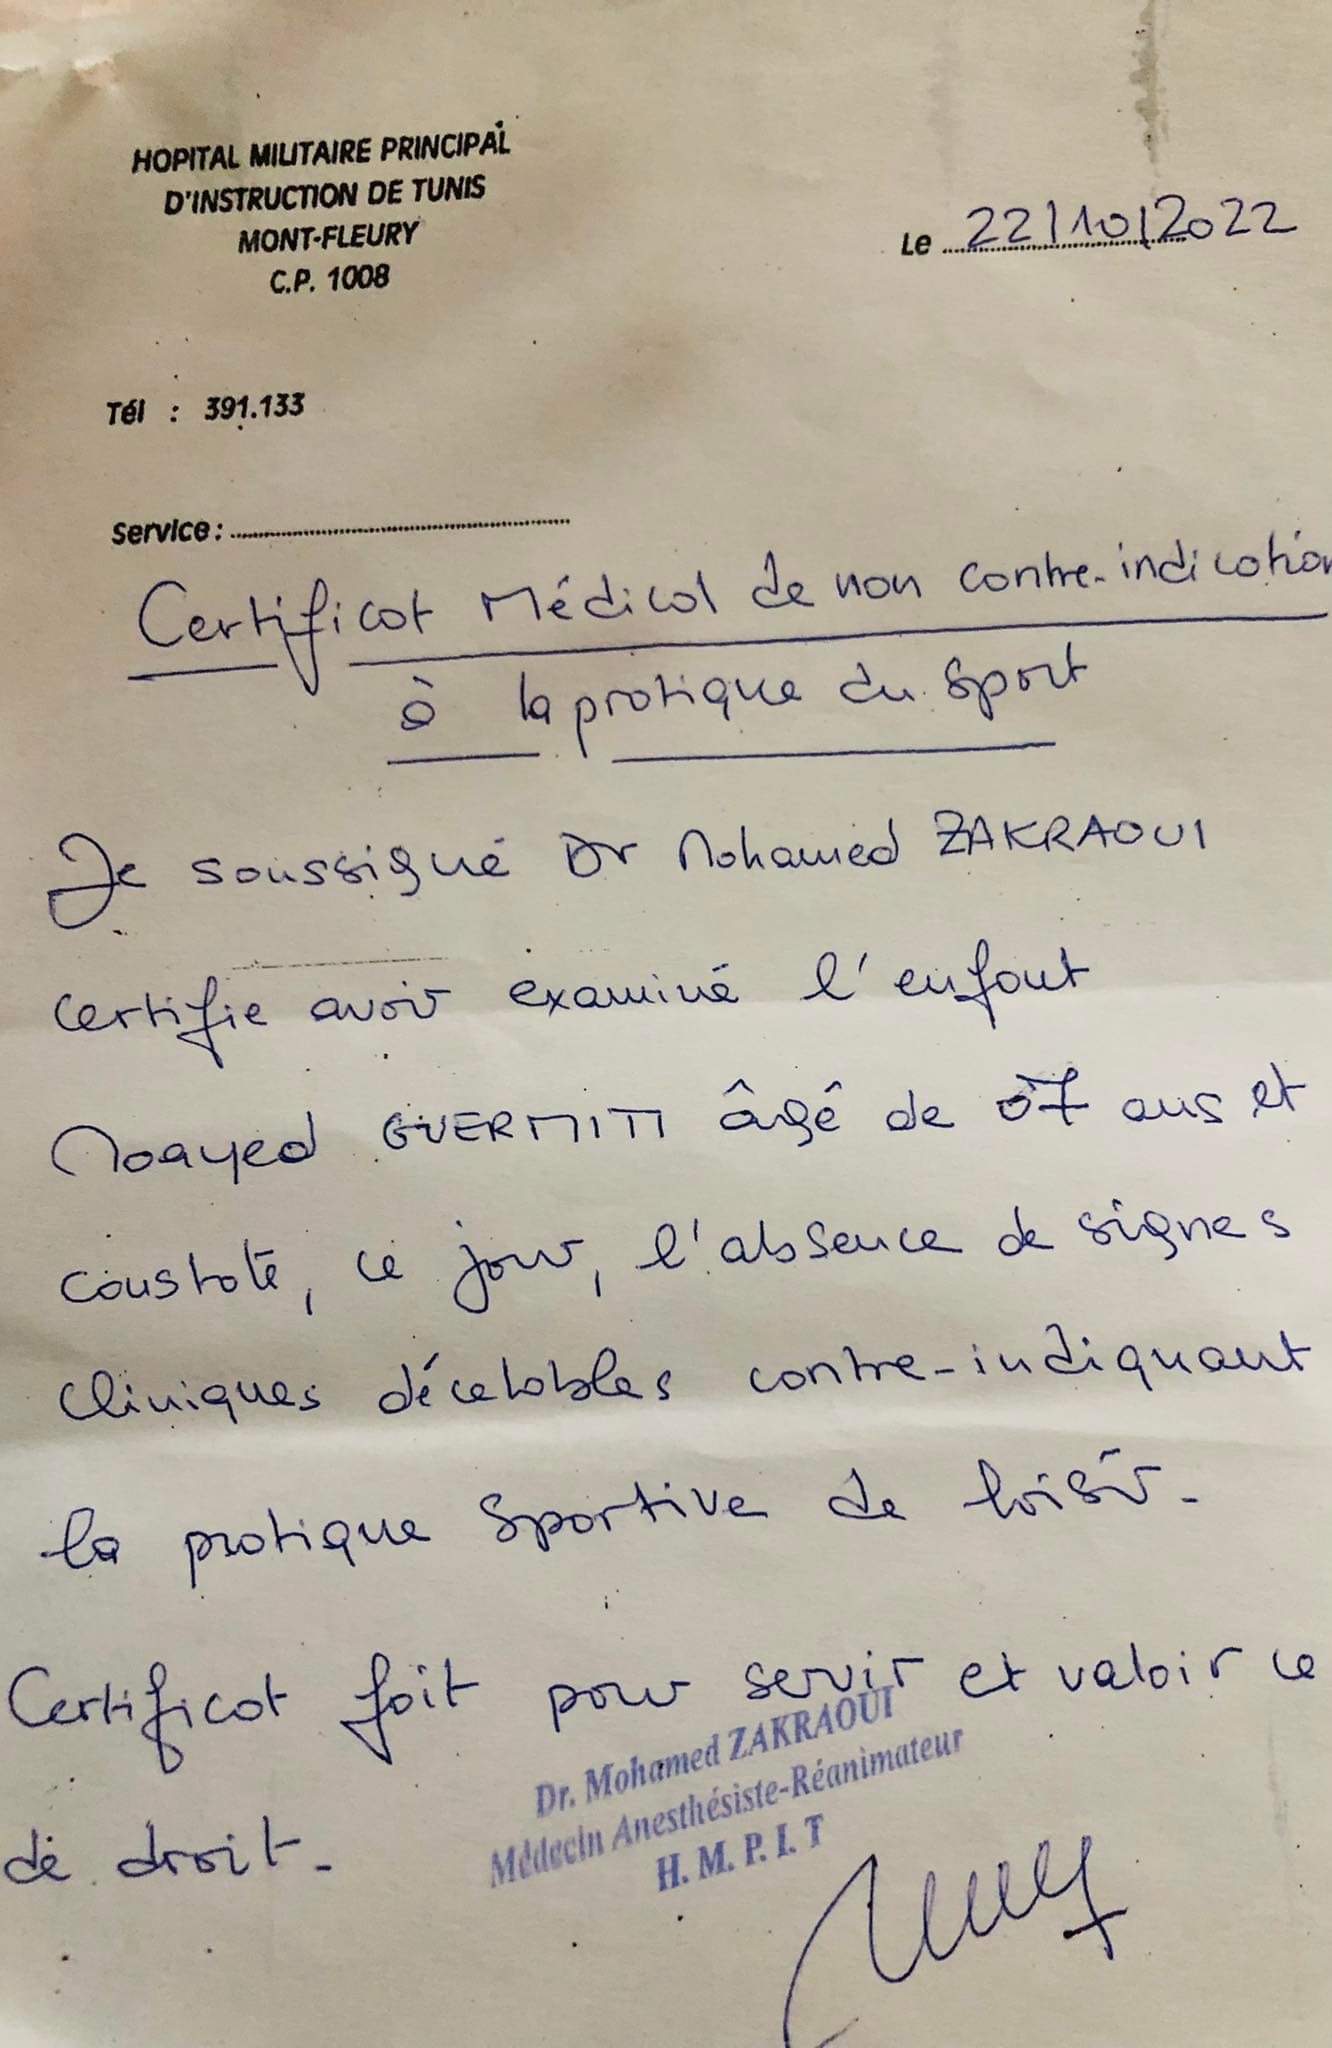 HOPITAL MILITAIRE PRINCIPAL
D'INSTRUCTION DE TUNIS
MONT-FLEURY
C.P. 1008
Le 22/10/2022
Tél : 391.133
Service :
Certificat Médical de non contre-indication
à la pratique du sport
Je soussigné Dr Mohamed ZAKRAOUI
certifie avoir examiné l'enfant
Moayed GUERMITI âgé de 07 ans et
constaté, ce jour, l'absence de signes
cliniques décelables contre-indiquant
la pratique sportive de loisir.
Certificat fait pour servir et valoir ce
de droit.
Dr. Mohamed ZAKRAOUI
Médecin Anesthésiste-Réanimateur
H. M. P. I. T